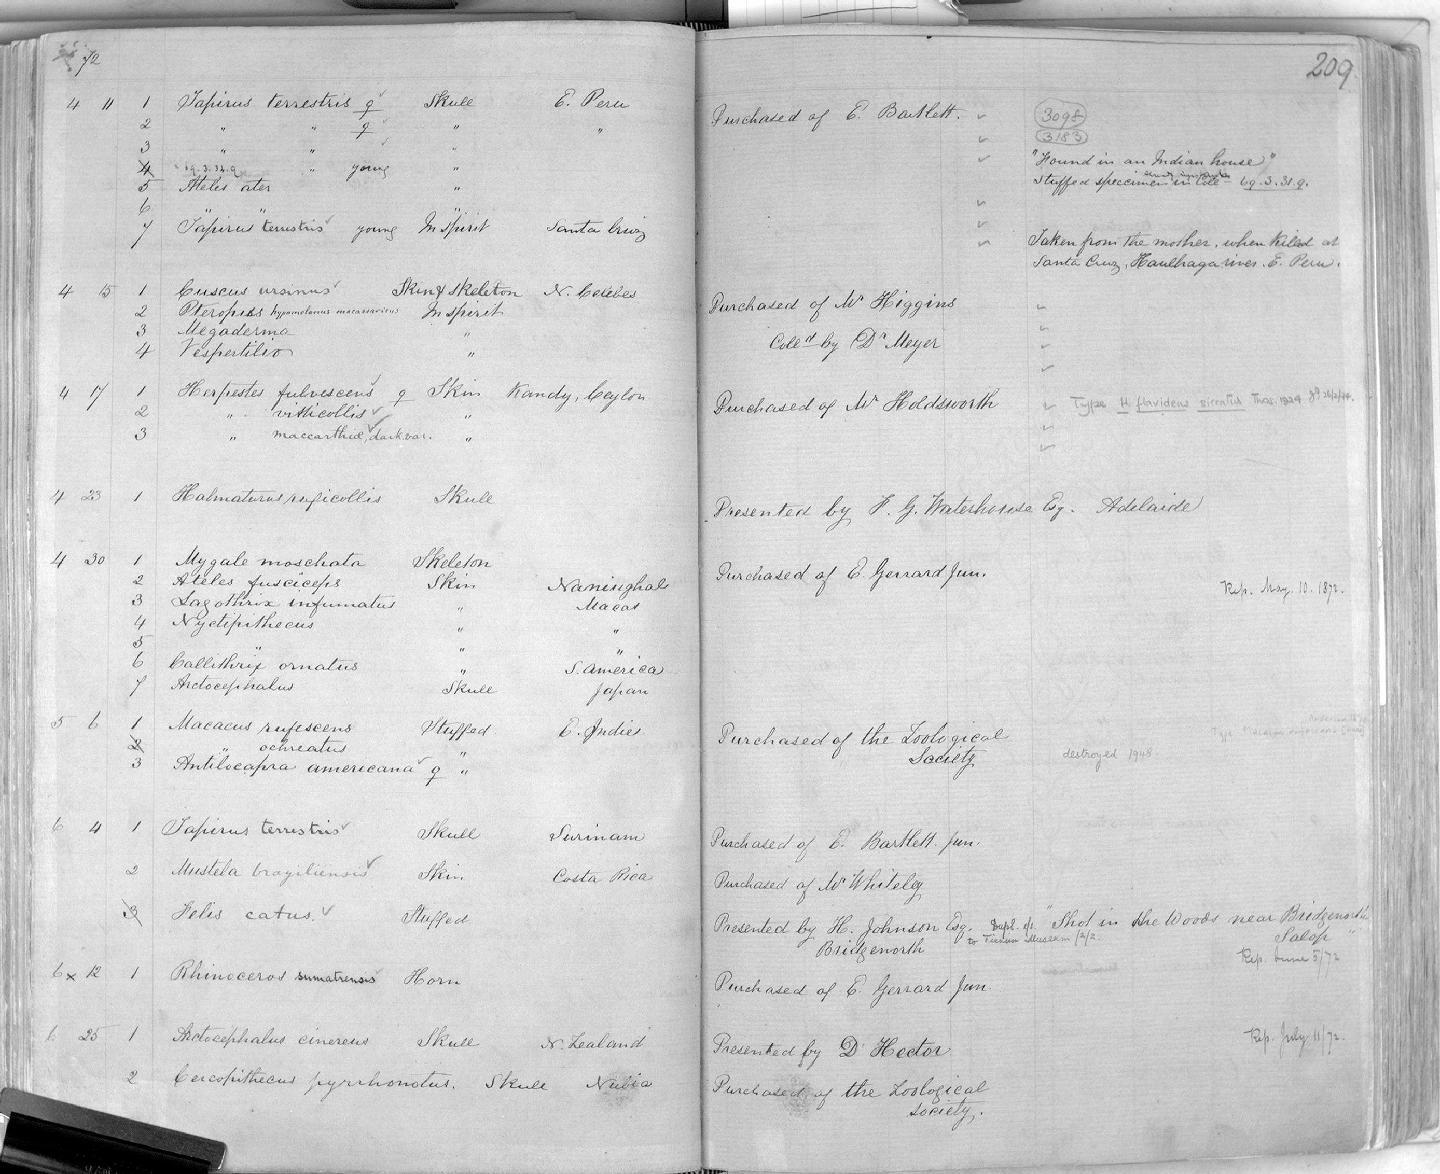 72
209
4 11 1 Tapirus terrestris ♀ Skull E. Peru Purchased of E. Bartlett. 3098
2 " " ♀ " " 3183
3 " " " "Found in an Indian house"
4 69.3.31.9 " young " Stuffed specimen in Coll - 69.3.31.9.
5 Ateles ater "
6 " " "
7 Tapirus terrestris young In Spirit Santa Cruz Taken from the mother, when killed at
Santa Cruz, Huallaga river. E. Peru.
4 15 1 Cuscus ursinus Skin & skeleton N. Celebes Purchased of Mr Higgins
2 Pteropus hypomelanus macassaricus In Spirit
3 Megaderma " Colld by Dr Meyer
4 Vespertilio "
4 17 1 Herpestes fulvescens ♀ Skin Kandy, Ceylon Purchased of Mr Holdsworth Type H flavidens siccatus Thos. 1924
2 " vitticollis "
3 " maccarthiæ, dark var. "
4 23 1 Halmaturus ruficollis Skull Presented by F. G. Waterhouse Esq. Adelaide
4 30 1 Mygale moschata Skeleton Purchased of E. Gerrard Jun.
2 Ateles fusciceps Skin Rep. May. 10. 1872.
3 Lagothrix infumatus " Macas
4 Nyctipithecus " "
5 " " "
6 Callithrix ornatus " S. America
7 Arctocephalus Skull Japan
5 6 1 Macacus rufescens Stuffed E. Indies Purchased of the Zoological
2 " ochreatus " Society destroyed 1948
3 Antilocapra americana ♀ "
6 4 1 Tapirus terrestris Skull Surinam Purchased of E. Bartlett Jun.
2 Mustela braziliensis Skin Costa Rica Purchased of Mr Whitely
3 Felis catus. Stuffed Presented by H. Johnson Esq. Dupl. "Shot in the Woods near Bridgenorth
Bridgenorth to Museum Salop "
Rep. June 5/72
6 12 1 Rhinoceros sumatrensis Horn Purchased of E. Gerrard Jun
6 25 1 Arctocephalus cinereus Skull N. Zealand Presented by Dr Hector Rep. July 11/72.
2 Cercopithecus pyrrhonotus. Skull Nubia Purchased of the Zoological
Society.